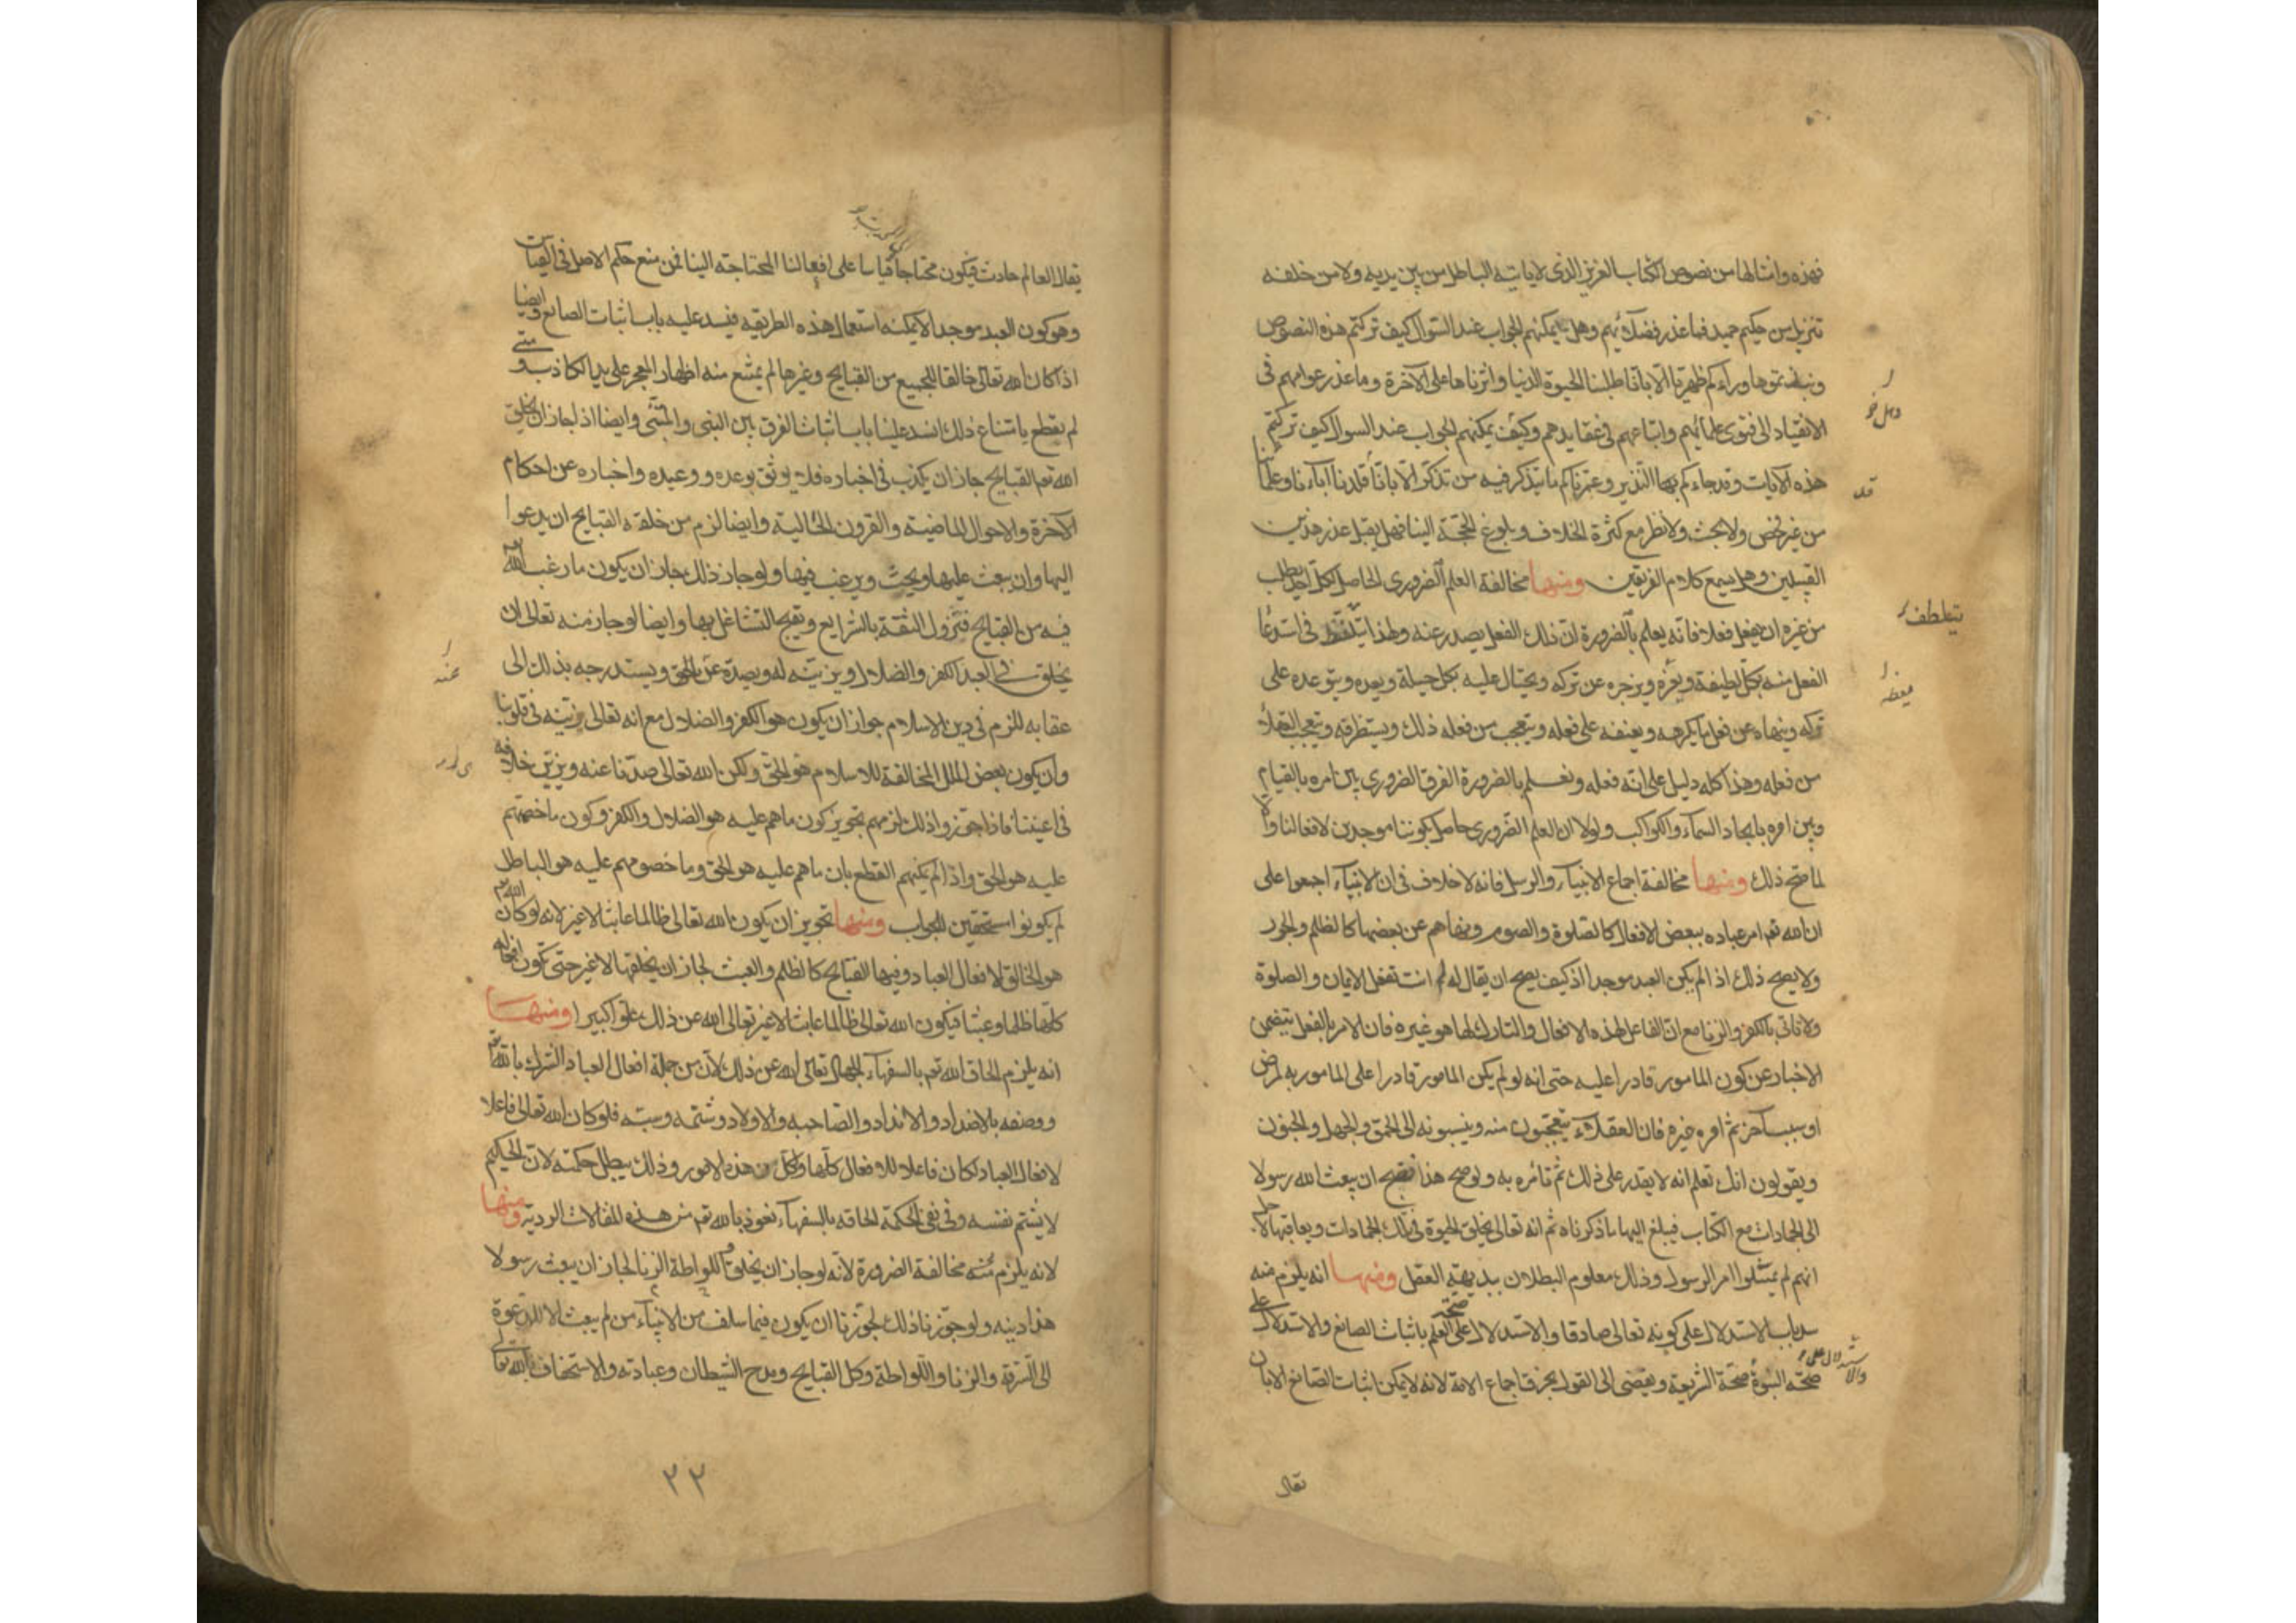 فهذه وامثالها من نصوص الكتاب العزيز الذى لاياتيه الباطل من بين يديه ولا من خلفه
تنزيل من حكيم حميد فما عذر فضلائهم وهل يمكنهم الجواب عند السوال كيف تركتم هذه النصوص
ونبذتموها وراءكم ظهريا الا باناطلبنا الحيوة الدنيا واثرناها على الآخرة وما عذر عوامهم فى
الانقياد الى فتوى علمائهم واتباعهم فى عقايدهم وكيف يمكنهم الجواب عند السوال كيف تركتم
هذه الآيات وقد جاءكم بها النذير وعمرناكم ما يتذكر فيه من تذكر الا بانا قلدنا آباءنا وعلمائنا
من غير فحص ولا بحث ولا نظر مع كثرة الخلاف وبلوغ الحجة الينا فهل يقبل عذر هذين
القبيلين وهل يسمع كلام الفريقين ومنها مخالفة العلم الضرورى الحاصل لكل احد يطلب
من غيره ان يفعل فعلا فانه يعلم بالضرورة ان ذلك الفعل يصدر عنه ولهذا فى استدعا
الفعل منه بكل لطيفة ويزجره عن تركه ويحتال عليه بكل حيلة ويعده ويتوعده على
تركه وينهاه عن فعل ما يكرهه ويعنفه على فعله ويتعجب من فعله ذلك ويستظرفه ويتعجب العقلا
من فعله وهذا كله دليل على انه فعله ونعلم بالضرورة الفرق الضرورى بين امره بالقيام
وبين امره بايجاد السماء والكواكب ولولا ان العلم الضرورى حاصل بكوننا موجدين لافعالنا والا
لما صح ذلك ومنها مخالفة اجماع الانبياء والرسل فانه لاخلاف فى ان الانبياء اجمعوا على
ان الله تعم امر عباده ببعض الافعال كالصلوة والصوم ونهاهم عن بعضها كالظلم والجور
ولايصح ذلك اذا لم يكن العبد موجدا اذ كيف يصح ان يقال له انت تفعل الايمان والصلوة
ولاتاتى بالكفر والزنا مع ان الفاعل لهذه الافعال والتارك لها هو غيره فان الامر بالفعل يتضمن
الاخبار عن كون المامور قادرا عليه حتى انه لو لم يكن المامور قادرا على المامور به لمرض
او سبب آخر ثم امره غيره فان العقلاء يتعجبون منه وينسبونه الى الحمق والجهل والجنون
ويقولون انك تعلم انه لا يقدر على ذلك ثم تامره به ولو صح هذا لصح ان يبعث الله رسولا
الى الجمادات مع الكتاب فيبلغ اليها ما ذكرناه ثم انه تعالى يخلق الحيوة فى تلك الجمادات ويعاقبها لاجل
انهم لم يمتثلوا امر الرسول وذلك معلوم البطلان ببديهة العقل ومنها انه يلزم منه
سد باب الاستدلال على كونه تعالى صادقا والاستدلال على العلم باثبات الصانع والاستدلال على
صحة النبوة صحة الشريعة ويفضى الى القول بخرق اجماع الامة لانه لايمكن اثبات الصانع الا بان
وهل خ
قد
يتلطف
يعظه
والاستدلال على
صحة
تقال
يقال العالم حادث فيكون محتاجا قياسا على افعالنا المحتاجة الينا فمن منع حكم الاصل فى القياس
وهو كون العبد موجدا لايمكنه استعمال هذه الطريقه فينسد عليه باب اثبات الصانع وايضا
اذا كان الله تعالى خالقا للجميع من القبايح وغيرها لم يمتنع منه اظهار المعجز على يد الكاذب ومتى
لم نقطع بامتناع ذلك انسد علينا باب اثبات الفرق بين النبى والمتنبى وايضا اذ لجاز ان يخلق
الله تعم القبايح جاز ان يكذب فى اخباره فلا يوثق بوعده ووعيده واخباره عن احكام
الآخرة والاحوال الماضية والقرون الخالية وايضا لزم من خلقه القبايح ان يدعوا
اليها وان يبعث عليها ويحث ويرغب فيها ولو جاز ذلك جاز ان يكون ما رغب الله تعم
فيه من القبايح فتزول الثقة بالشرايع ويقبح التشاغل بها وايضا لوجاز منه تعالى ان
يخلق فى العبد الكفر والضلال ويزينه له ويصده عن الحق ويستدرجه بذلك الى
عقابه للزم فى دين الاسلام جواز ان يكون هو الكفر والضلال مع انه تعالى زينه فى قلوبنا
وان يكون بعض الملل المخالفة للاسلام هو الحق ولكن الله تعالى صدنا عنه وزين خلافه
فى اعيننا فاذا جوزوا ذلك لزمهم تجويز كون ما هم عليه هو الضلال والكفر وكون ما خصمهم
عليه هو الحق واذا لم يمكنهم القطع بان ما هم عليه هو الحق وما خصومهم عليه هو الباطل
لم يكونوا مستحقين للجواب ومنها تجويز ان يكون الله تعالى ظالما عابثا لاغير لانه لو كان الله تعم
هو الخالق لافعال العباد وفيها القبايح كالظلم والعبث لجاز ان يخلقها لاغير حتى تكون افعاله
كلها ظلما وعبثا فيكون الله تعالى ظالما عابثا لاغير تعالى الله عن ذلك علوا كبيرا ومنها
انه يلزم الحاق الله تعم بالسفهاء الجهال تعالى الله عن ذلك لان من جملة افعال العباد الشرك بالله تعم
ووصفه بالاضداد والانداد والصاحبه والاولاد وشتمه وسبه فلو كان الله تعالى فاعلا
لافعال العباد لكان فاعلا للافعال كلها ولكل من هذه الامور وذلك يبطل حكمته لان الحكيم
لايشتم نفسه وفى نفى الحكمة الحاقه بالسفهاء نعوذ بالله تعم من هذه المقالات الردية ومنها
لانه يلزم منه مخالفة الضرورة لانه لوجاز ان يخلق اللواطة الزنا لجاز ان يبعث رسولا
هذا دينه ولو جوزنا ذلك لجوزنا ان يكون فيما سلف من الانبياء من لم يبعث الا للدعوة
الى السرقة والزنا واللواطة وكل القبايح ومدح الشيطان وعبادته والاستخفاف بالله تعالى
عنه
٢٢